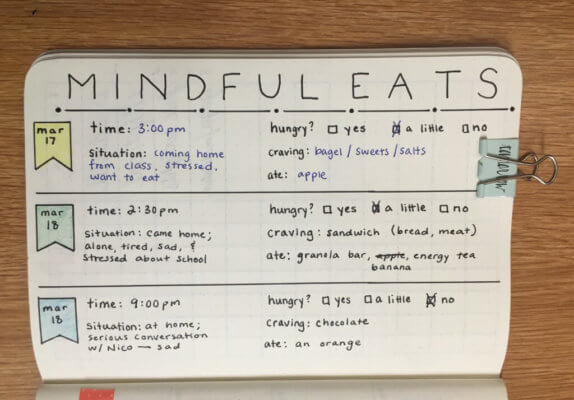 MINDFUL EATS
mar 17
time: 3:00 pm
hungry? □ yes ☒ a little □ no
Situation: coming home
from class, stressed,
want to eat
craving: bagel / sweets / salts
ate: apple
mar 18
time: 2:30 pm
hungry? □ yes ☒ a little □ no
Situation: came home;
alone, tired, sad, &
stressed about school
craving: sandwich (bread, meat)
ate: granola bar, apple, energy tea
banana
mar 18
time: 9:00 pm
hungry? □ yes □ a little ☒ no
Situation: at home;
serious conversation
w/ Nico — sad
craving: chocolate
ate: an orange